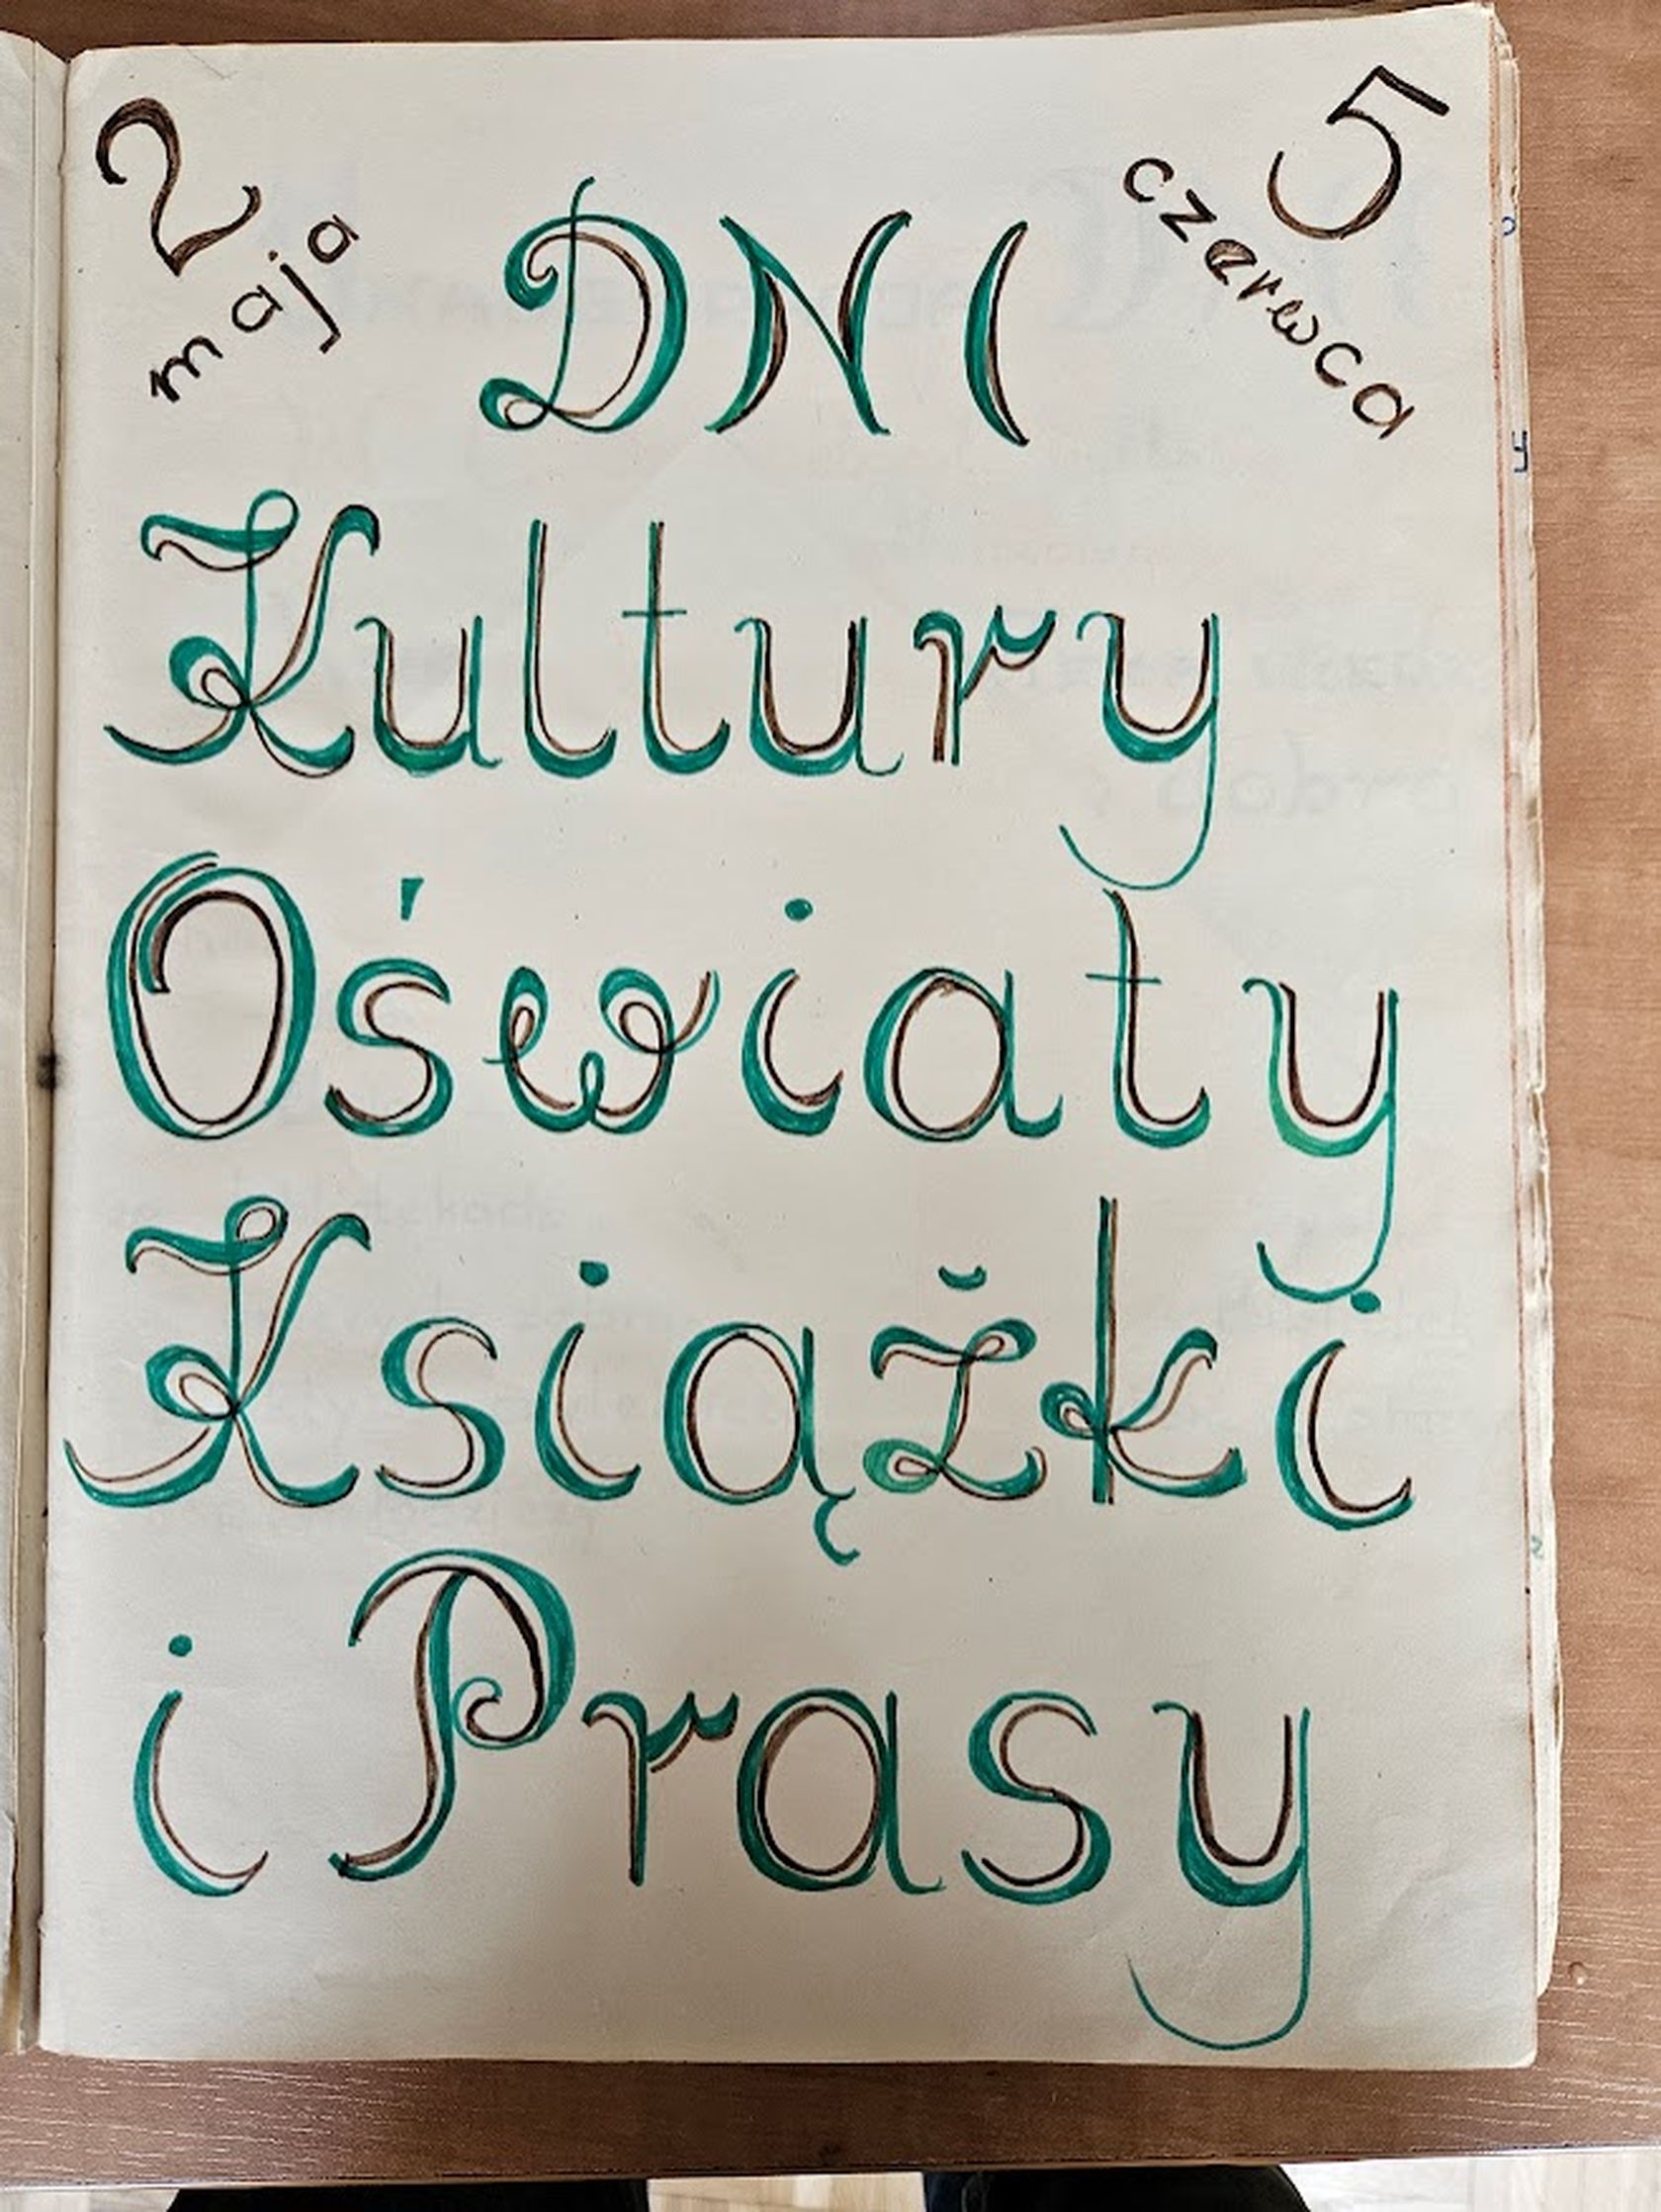 2 maja
5 czerwca
DNI
Kultury
Oświaty
Książki
i Prasy